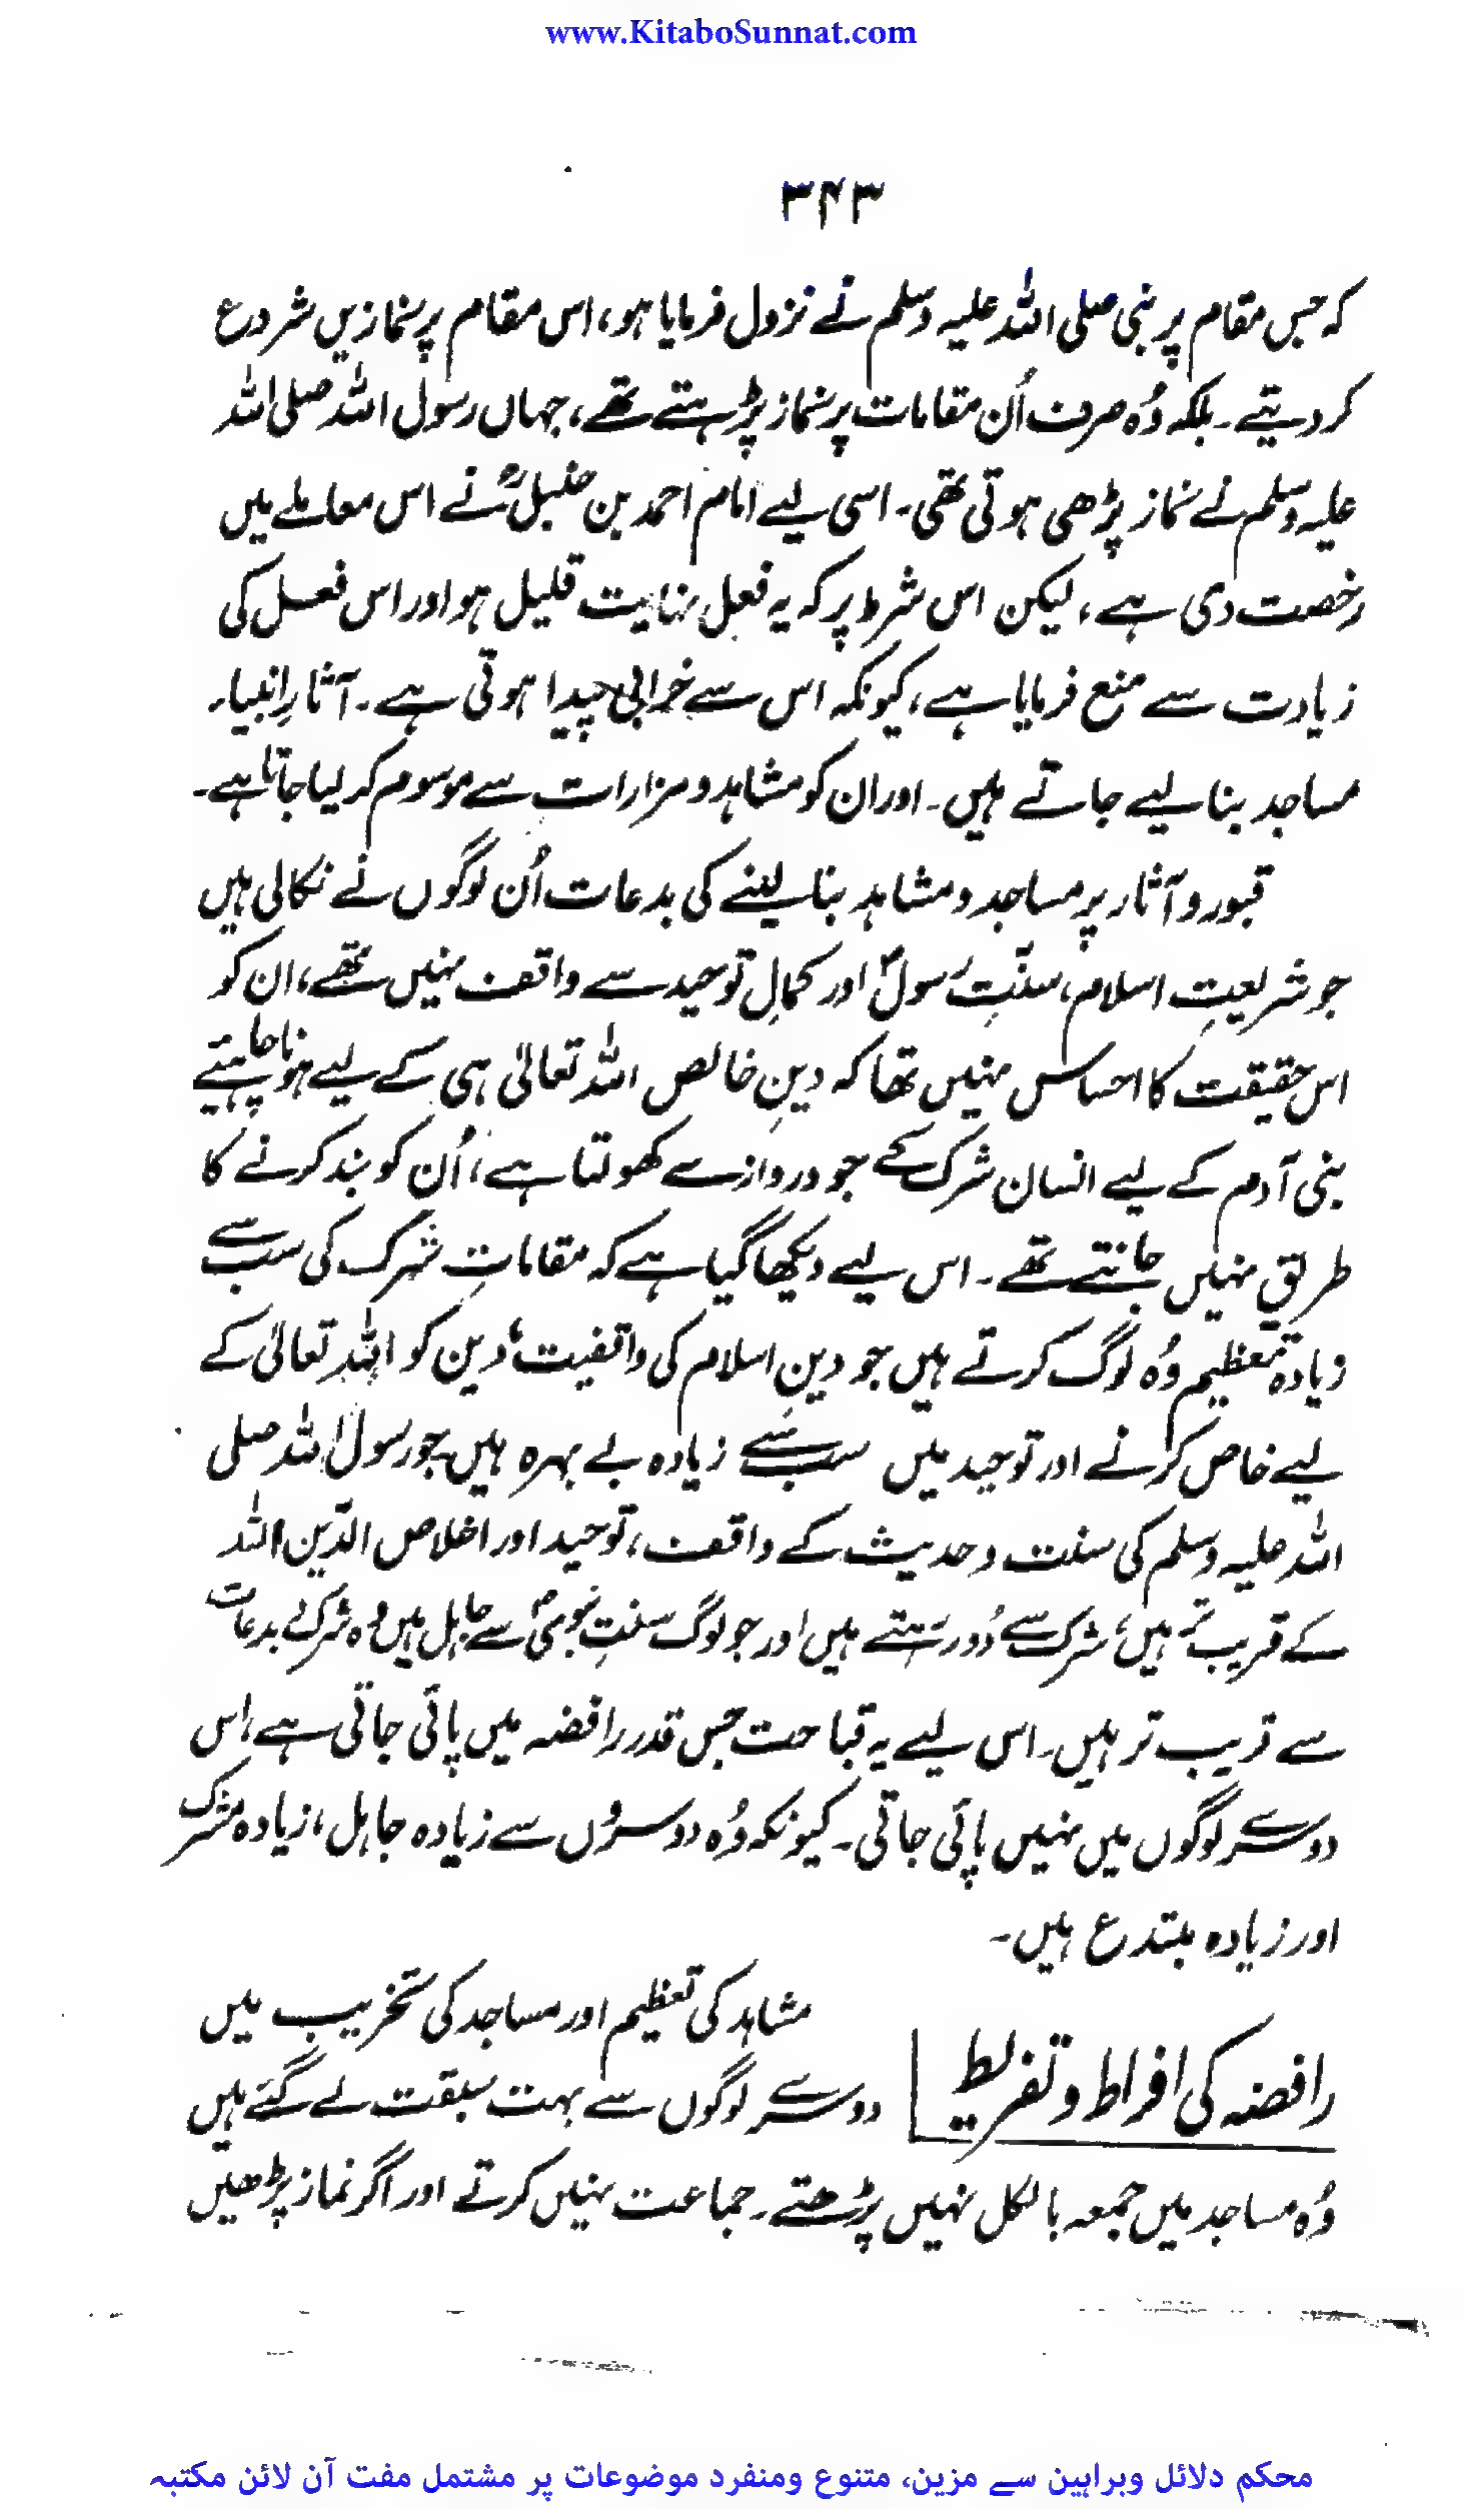 www.KitaboSunnat.com
۳۴۳
کہ جس مقام پر نبی صلی اللہ علیہ وسلم نے نزول فرمایا ہو، اس مقام پر نمازیں شروع
کر دیتے۔ بلکہ وُہ صرف اُن مقامات پر نماز پڑھتے تھے، جہاں رسول اللہ صلی اللہ
علیہ وسلم نے نماز پڑھی ہوتی تھی۔ اسی لیے امام احمد بن حنبلؒ نے اس معاملے میں
رخصت دی ہے، لیکن اس شرط پر کہ یہ فعل نہایت قلیل ہو اور اس فعل کی
زیادت سے منع فرمایا ہے، کیونکہ اس سے خرابی پیدا ہوتی ہے۔ آثارِ انبیاء
مساجد بنا لیے جاتے ہیں۔ اور ان کو مشاہد و مزارات سے موسوم کر لیا جاتا ہے۔
قبور و آثار پر مساجد و مشاہد بنا لینے کی بدعات اُن لوگوں نے نکالی ہیں
جو شریعتِ اسلام، سنّتِ رسولؐ اور کمالِ توحید سے واقف نہیں تھے، ان کو
اس حقیقت کا احساس نہیں تھا کہ دینِ خالص اللہ تعالیٰ ہی کے لیے ہونا چاہیئے
بنی آدم کے لیے انسان شرک کے جو دروازے کھولتا ہے، اُن کو بند کرنے کا
طریق نہیں جانتے تھے۔ اس لیے دیکھا گیا ہے کہ مقاماتِ شرک کی سب سے
زیادہ تعظیم وُہ لوگ کرتے ہیں جو دینِ اسلام کی واقفیت، دین کو اللہ تعالیٰ کے
لیے خاص کرنے اور توحید میں سب سے زیادہ بے بہرہ ہیں۔ جو رسول اللہ صلی
اللہ علیہ وسلم کی سنت و حدیث کے واقف، توحید اور اخلاص الدّین اللہ
کے قریب تر ہیں، شرک سے دُور رہتے ہیں اور جو لوگ سنتِ نبویؐ سے جاہل ہیں وُہ شرک و بدعات
سے قریب تر ہیں۔ اس لیے یہ قباحت جس قدر رافضہ میں پائی جاتی ہے، اس
دوسرے لوگوں میں نہیں پائی جاتی۔ کیونکہ وُہ دوسروں سے زیادہ جاہل، زیادہ مشرک
اور زیادہ مبتدع ہیں۔
رافضہ کی افراط و تفریط
مشاہد کی تعظیم اور مساجد کی تخریب میں
دوسرے لوگوں سے بہت سبقت لے گئے ہیں
وُہ مساجد میں جمعہ بالکل نہیں پڑھتے۔ جماعت نہیں کرتے اور اگر نماز پڑھیں
محکم دلائل وبراہین سے مزین، متنوع ومنفرد موضوعات پر مشتمل مفت آن لائن مکتبہ